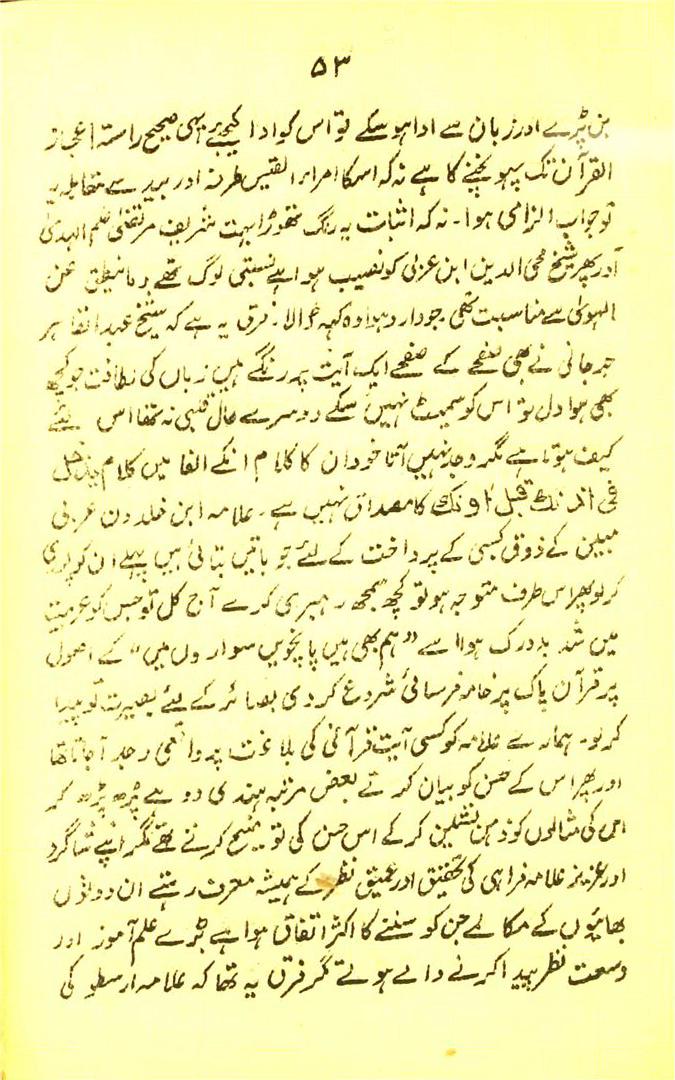 ۵۳
بن پڑے اور زبان سے ادا ہو سکے تو اس کو ادا کیجیے یہی صحیح راستہ اعجاز
القرآن تک پہونچنے کا ہے نہ کہ اسکا امراء القیس طرفہ اور لبید سے مقابلہ یہ
تو جواب الزامی ہوا۔ نہ کہ اثبات یہ رنگ تھوڑا بہت شریف مرتضیٰ علم الہدیٰ
اور پھر شیخ محی الدین ابن عربی کو نصیب ہوا ہے نسبتی لوگ تھے وما ینطق عن
الہویٰ سے مناسبت تھی۔ جو وارد ہوا وہ کہہ ڈالا۔ فرق یہ ہے کہ شیخ عبد القاہر
جرجانی نے بھی صفحے کے صفحے ایک آیت پر رنگے ہیں زباں کی لطافت جو کچھ
بھی ہوا دل تو اس کو سمیٹ نہیں سکے دوسرے حال قلبی نہ تھا اس لئے
کیف ہوتا ہے مگر وجد نہیں آتا خود ان کا کلام انکے الفا میں کلام یدخل
فی اذنک قبل اونک کا مصداق نہیں ہے۔ علامہ ابن خلدون عربی
مبین کے ذوق کسبی کے پرداخت کے لئے جو باتیں بتائی ہیں پہلے ان کو پوری
کر لو پھر اس طرف متوجہ ہو تو کچھ سمجھ رہبری کرے آج کل تو جس کو عربیت
میں شد بد درک ہوا اسے "ہم بھی ہیں پانچویں سواروں میں" کے اصول
پر قرآن پاک پر خامہ فرسائی شروع کر دی بصائر کے لیئے بصیرت تو پیدا
کر لو۔ ہمارے علامہ کو کسی آیت قرآنی کی بلاغت پر واقعی وجد آ جاتا تھا
اور پھر اس کے حسن کو بیان کرتے بعض مرتبہ ہندی دوہے پڑھ پڑھ کر
اس کی مثالوں کو ذہن نشین کر کے اس حسن کی توضیح کرتے تھے مگر اپنے شاگرد
اور عزیز علامہ فراہی کی تحقیق اور عمیق نظر کے ہمیشہ معترف رہتے ان دونوں
بھائیوں کے مکالمے جن کو سننے کا اکثر اتفاق ہوا ہے بڑے علم آموز اور
وسعت نظر پیدا کرنے والے ہوتے مگر فرق یہ تھا کہ علامہ ارسطو کی